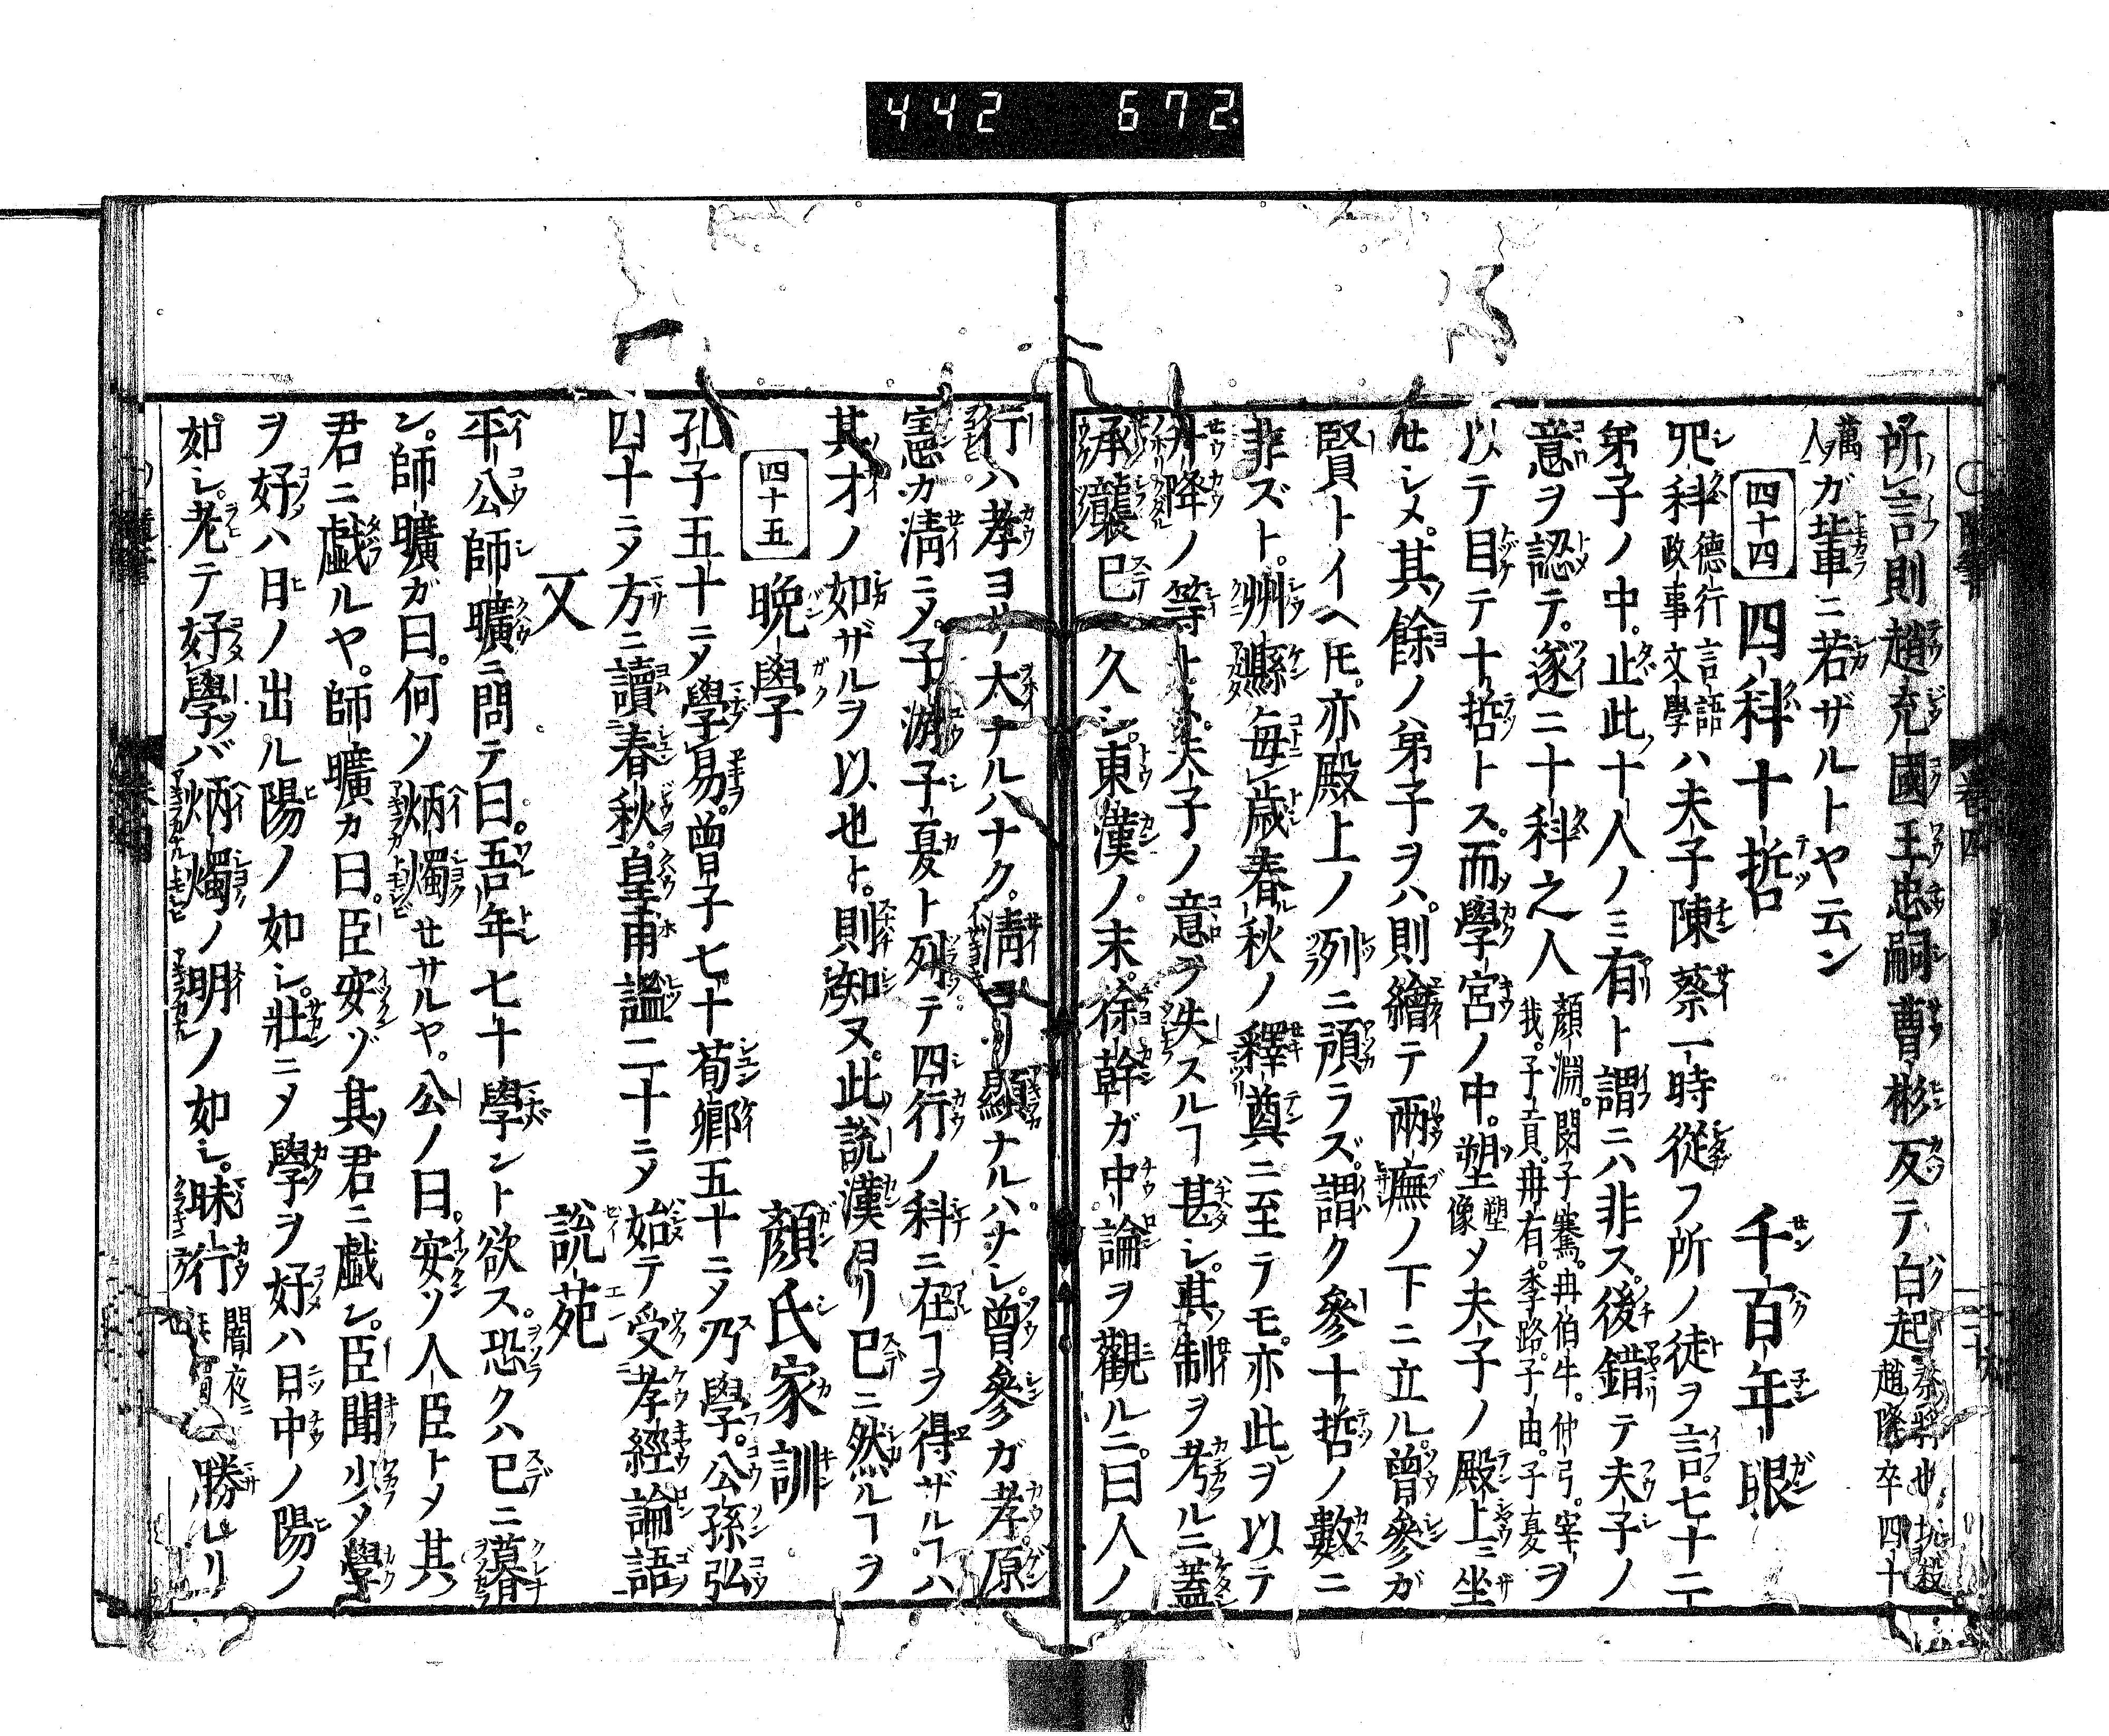 442 672.
所言則趙充國王忠嗣曹彬反テ白起趙降卒四十
萬人ガ輩ニ若ザルトヤ云ン
四十四 四科十哲 千百年眼
四科德行言語政事文學ハ夫子陳蔡一時從フ所ノ徒ヲ言七十二
弟子ノ中止此十人ノミ有ト謂ニハ非ス後錯テ夫子ノ
意ヲ認テ遂ニ十科之人顏淵閔子騫冉伯牛仲弓宰我子貢冉有季路子由子夏ヲ
以テ目テ十哲トス而學宮ノ中塑塑像メ夫子ノ殿上ニ坐
セシメ其餘ノ弟子ヲハ則繪テ兩廡ノ下ニ立ル曾參ガ
賢トイヘモ亦殿上ノ列ニ預ラズ謂ク參十哲ノ數ニ
非ズト州縣毎歲春秋ノ釋奠ニ至テモ亦此ヲ以テ
升降ノ等トス夫子ノ意ヲ失スルヿ甚シ其制ヲ考ルニ蓋
承襲巳久シ東漢ノ末徐幹ガ中論ヲ觀ルニ曰人ノ
行ハ孝ヨリ大ナルハナク淸ヨリ顯ナルハナシ曾參ガ孝原
憲カ淸ニメ子游子夏ト列テ四行ノ科ニ在ヿヲ得ザルヿハ
其才ノ如ザルヲ以也ト則知ヌ此說漢ヨリ巳ニ然ルヿヲ
四十五 晩學 顏氏家訓
孔子五十ニメ學易曾子七十荀卿五十ニメ乃學公孫弘
四十ニメ方ニ讀春秋皇甫謐二十ニメ始テ受孝經論語
又 說苑
平公師曠ニ問テ曰吾年七十學ント欲ス恐クハ巳ニ暮
ン師曠ガ曰何ソ炳燭セサルヤ公ノ曰安ソ人臣トメ其
君ニ戯ルヤ師曠カ曰臣安ゾ其君ニ戯シ臣聞少メ學
ヲ好ハ日ノ出ル陽ノ如シ壯ニメ學ヲ好ハ日中ノ陽ノ
如シ老テ好學バ炳燭ノ明ノ如シ昧行闇夜ニ勝レリ